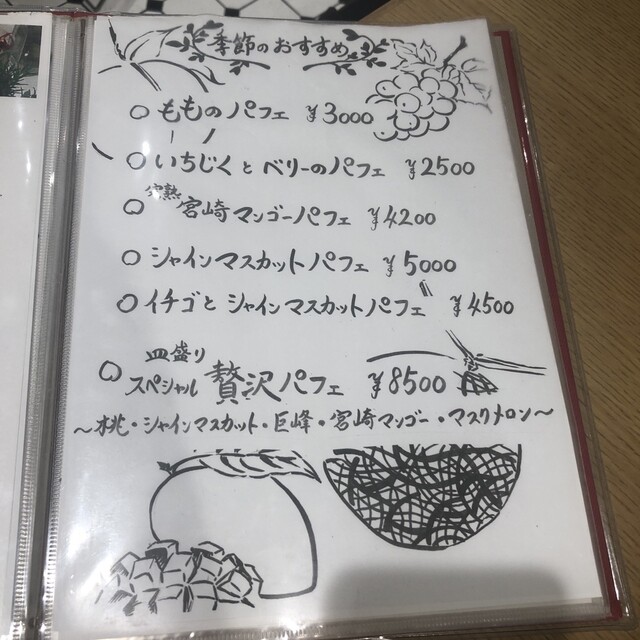 季節のおすすめ
○ もものパフェ ¥3000
○ いちじくとベリーのパフェ ¥2500
○ 完熟 宮崎マンゴーパフェ ¥4200
○ シャインマスカットパフェ ¥5000
○ イチゴとシャインマスカットパフェ ¥4500
皿盛り
○ スペシャル 贅沢パフェ ¥8500
〜桃・シャインマスカット・巨峰・宮崎マンゴー・マスクメロン〜